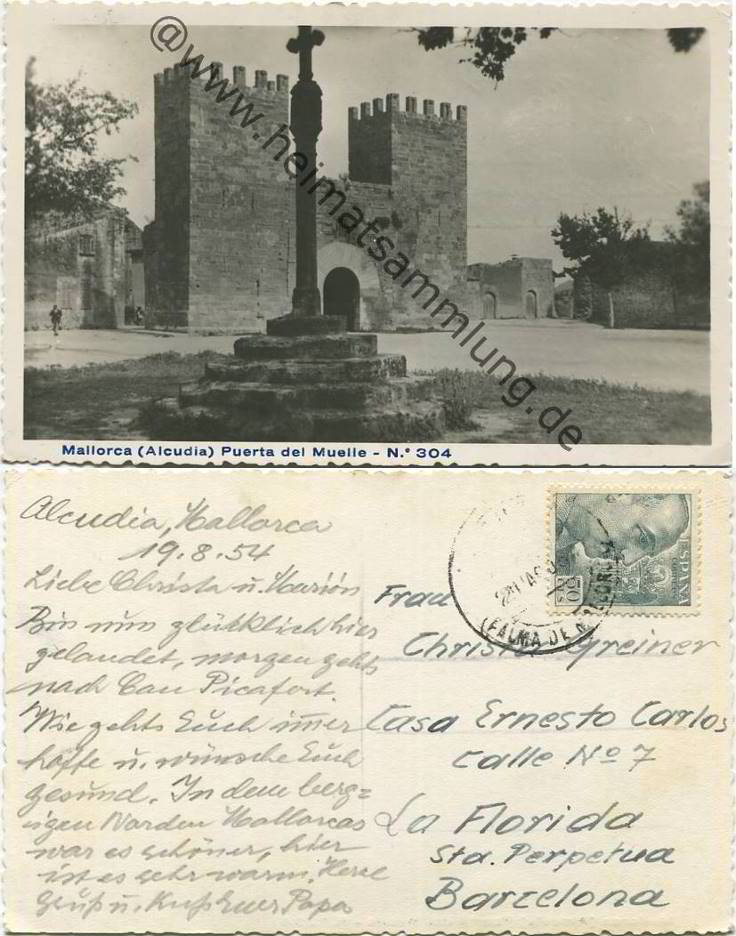 @www.heimatsammlung.de
Mallorca (Alcudia) Puerta del Muelle - N.° 304
Alcudia, Mallorca
19.8.54
Liebe Christa u. Marión
Bin nun glücklich hier
gelandet, morgen gehts
nach Can Picafort.
Wie gehts Euch immer
hoffe u. wünsche Euch
gesund. In dem berg=
igen Norden Mallorcas
war es schöner, hier
ist es sehr warm. Herz
Gruß u. Kuß Euer Papa
ESPAÑA
(PALMA DE MALLORCA)
Frau
Christa Greiner
Casa Ernesto Carlos
Calle Nº 7
La Florida
Sta. Perpetua
Barcelona